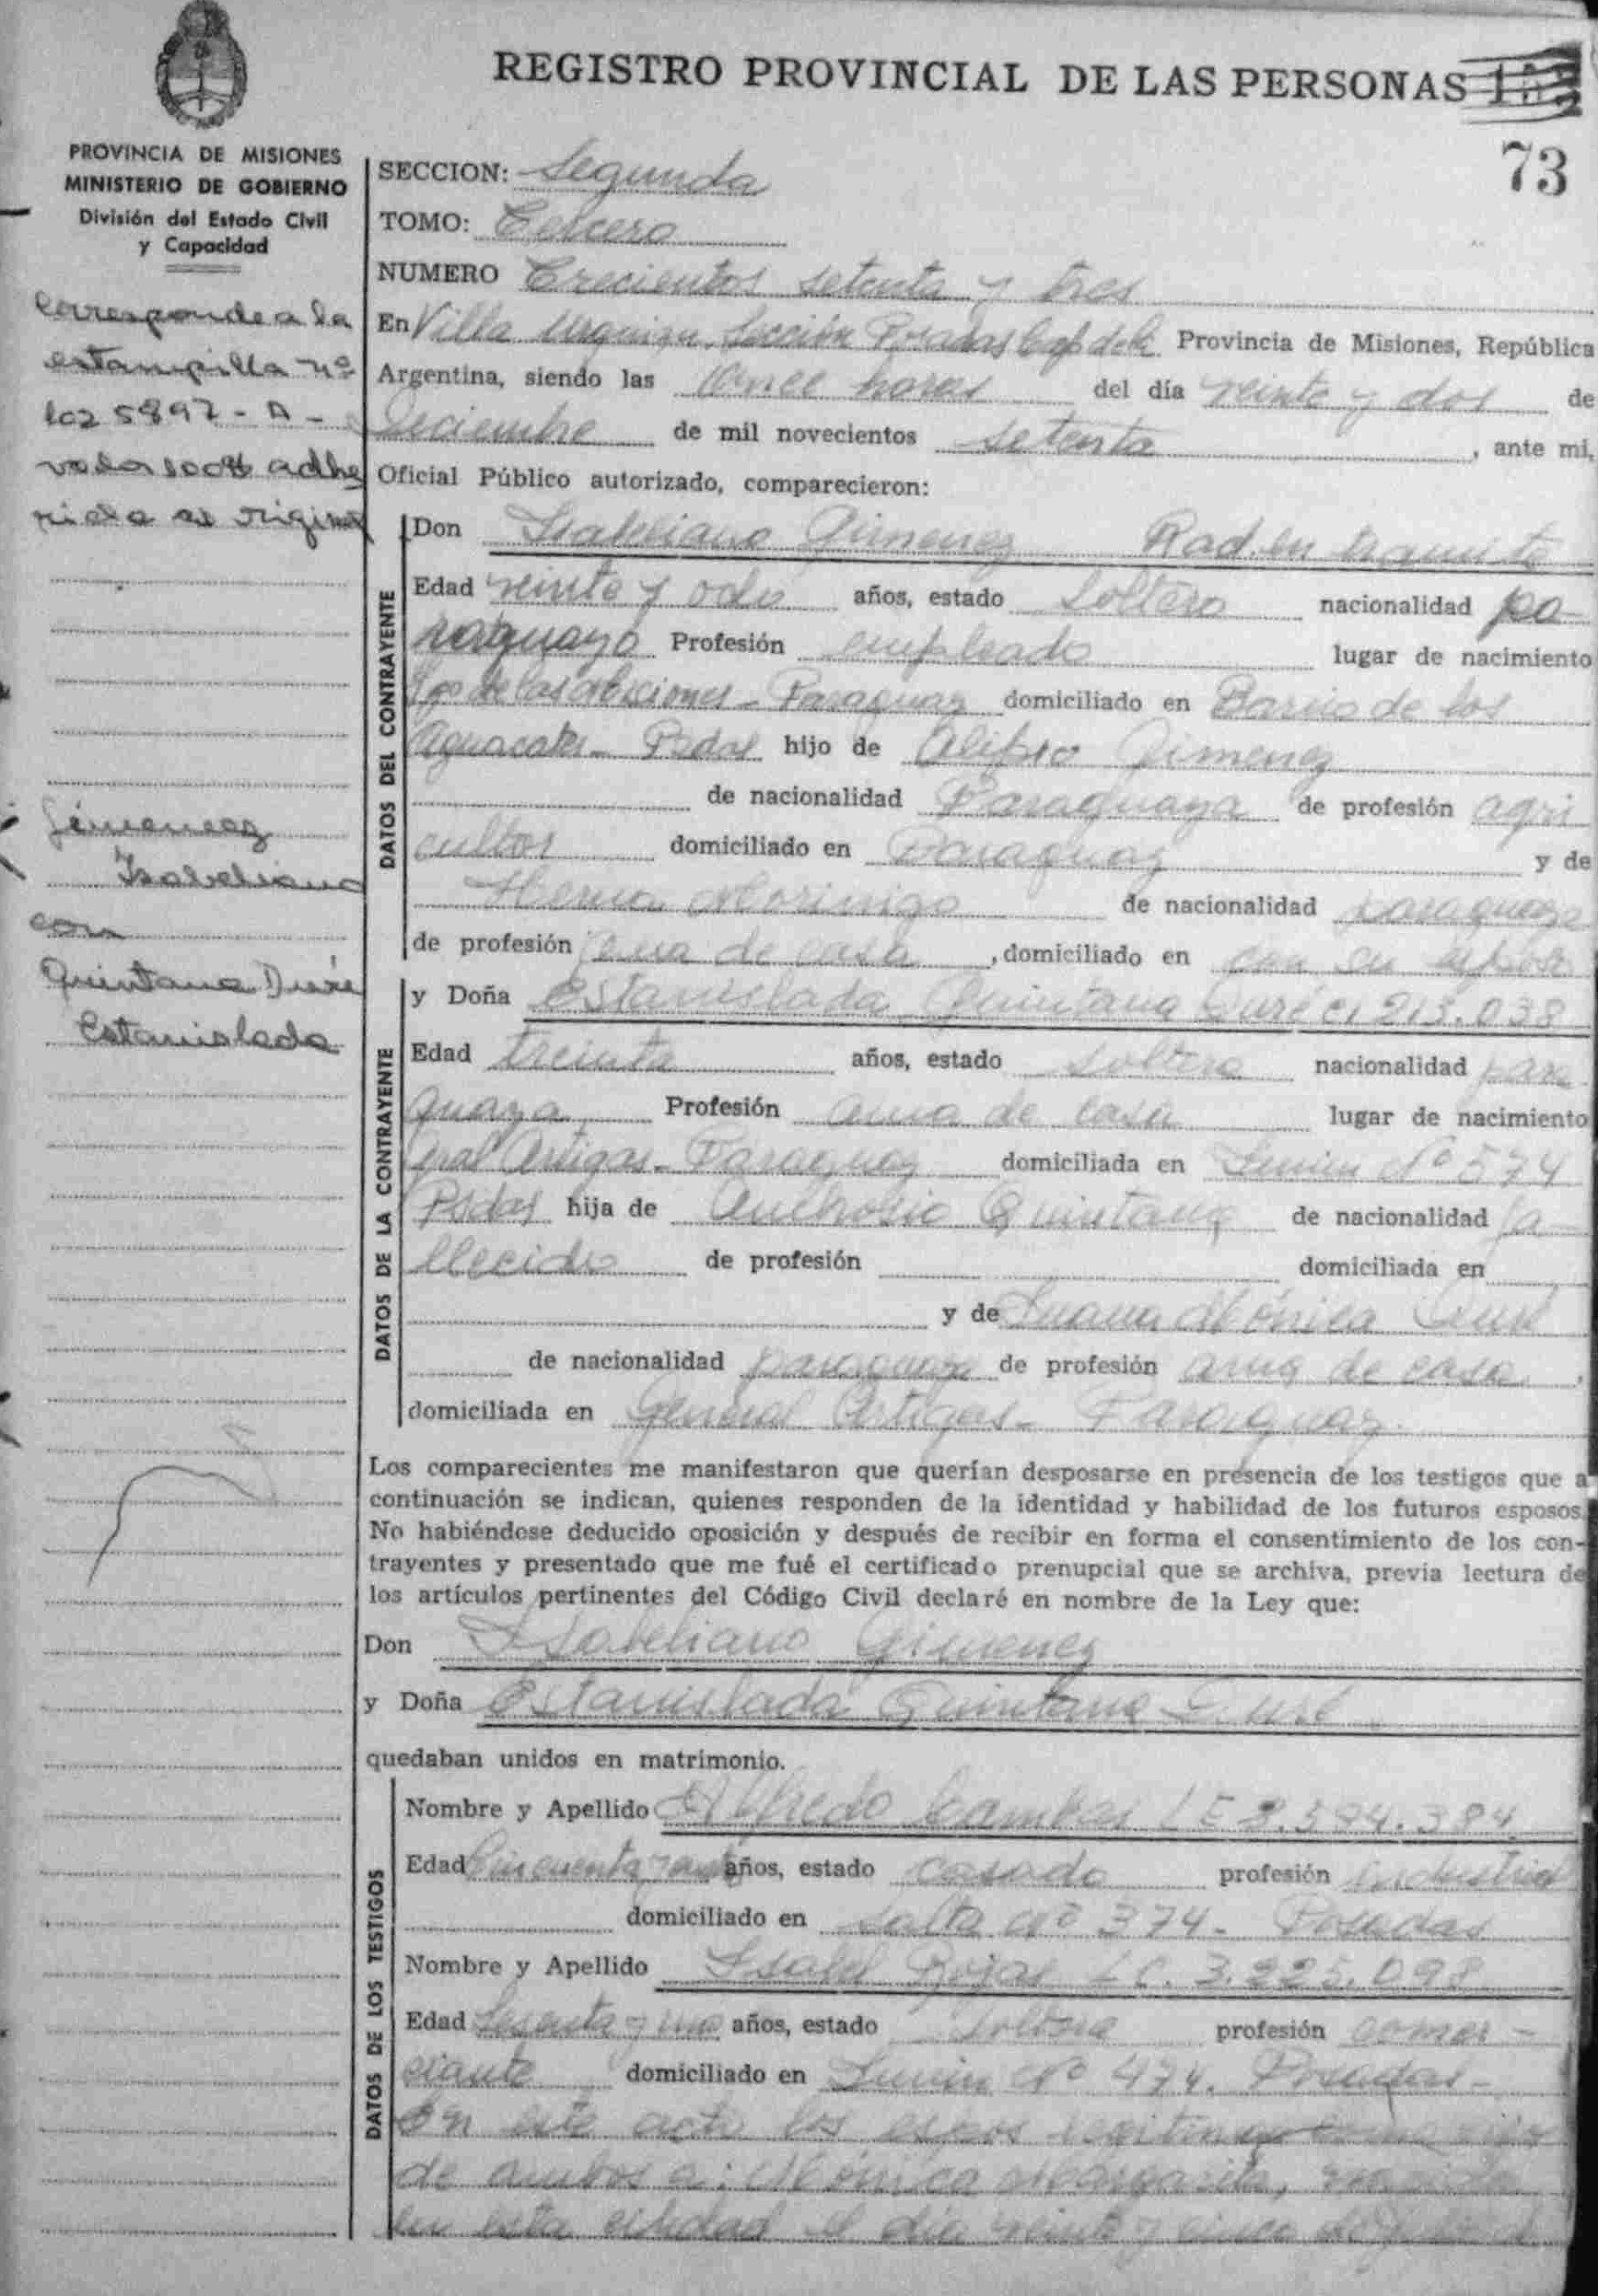 REGISTRO PROVINCIAL DE LAS PERSONAS
73
PROVINCIA DE MISIONES
MINISTERIO DE GOBIERNO
División del Estado Civil
y Capacidad
Corresponde a la
estampilla nº
102 5897 - A -
valor adhe
rida al original
Gimenez
Isabeliano
con
Quintana Duré
Estanislada
SECCION: Segunda
TOMO: Tercero
NUMERO Trecientos setenta y tres
En Villa Urquiza, Sección Posadas Cap de la Provincia de Misiones, República
Argentina, siendo las once horas del día veinte y dos de
Deciembre de mil novecientos setenta, ante mi,
Oficial Público autorizado, comparecieron:
DATOS DEL CONTRAYENTE
Don Isabeliano Gimenez Rad. en tramite
Edad veinte y ocho años, estado soltero nacionalidad pa-
raguayo Profesión empleado lugar de nacimiento
de las Misiones - Paraguay domiciliado en Barrio de los
Aguacates - Psdas hijo de Alipio Jimenez
de nacionalidad Paraguaya de profesión agri
cultor domiciliado en Paraguay y de
Morinigo de nacionalidad paraguaya
de profesión ama de casa, domiciliado en con su esposo
DATOS DE LA CONTRAYENTE
y Doña Estanislada Quintana Duré CI 213.038
Edad treinta años, estado soltera nacionalidad para-
guaya Profesión ama de casa lugar de nacimiento
Gral Artigas - Paraguay domiciliada en Junin Nº 574
Psdas hija de Quintana de nacionalidad fa-
llecido de profesión domiciliada en
y de Juana Mónica Duré
de nacionalidad paraguaya de profesión ama de casa,
domiciliada en General Artigas - Paraguay.
Los comparecientes me manifestaron que querían desposarse en presencia de los testigos que a
continuación se indican, quienes responden de la identidad y habilidad de los futuros esposos.
No habiéndose deducido oposición y después de recibir en forma el consentimiento de los con-
trayentes y presentado que me fué el certificado prenupcial que se archiva, previa lectura de
los artículos pertinentes del Código Civil declaré en nombre de la Ley que:
Don Isabeliano Gimenez
y Doña Estanislada Quintana Duré
quedaban unidos en matrimonio.
DATOS DE LOS TESTIGOS
Nombre y Apellido Alfredo Cambas LE 3.594.384
Edad cincuenta y años, estado casado profesión industrial
domiciliado en Salta Nº 374 - Posadas
Nombre y Apellido Isabel Rojas LC. 3.225.098
Edad Sesenta y uno años, estado soltera profesión comer-
ciante domiciliado en Junin Nº 474. Posadas -
En este acto los legitiman
de ambos a: Mónica Margarita,
en esta ciudad el día veinte y cinco de